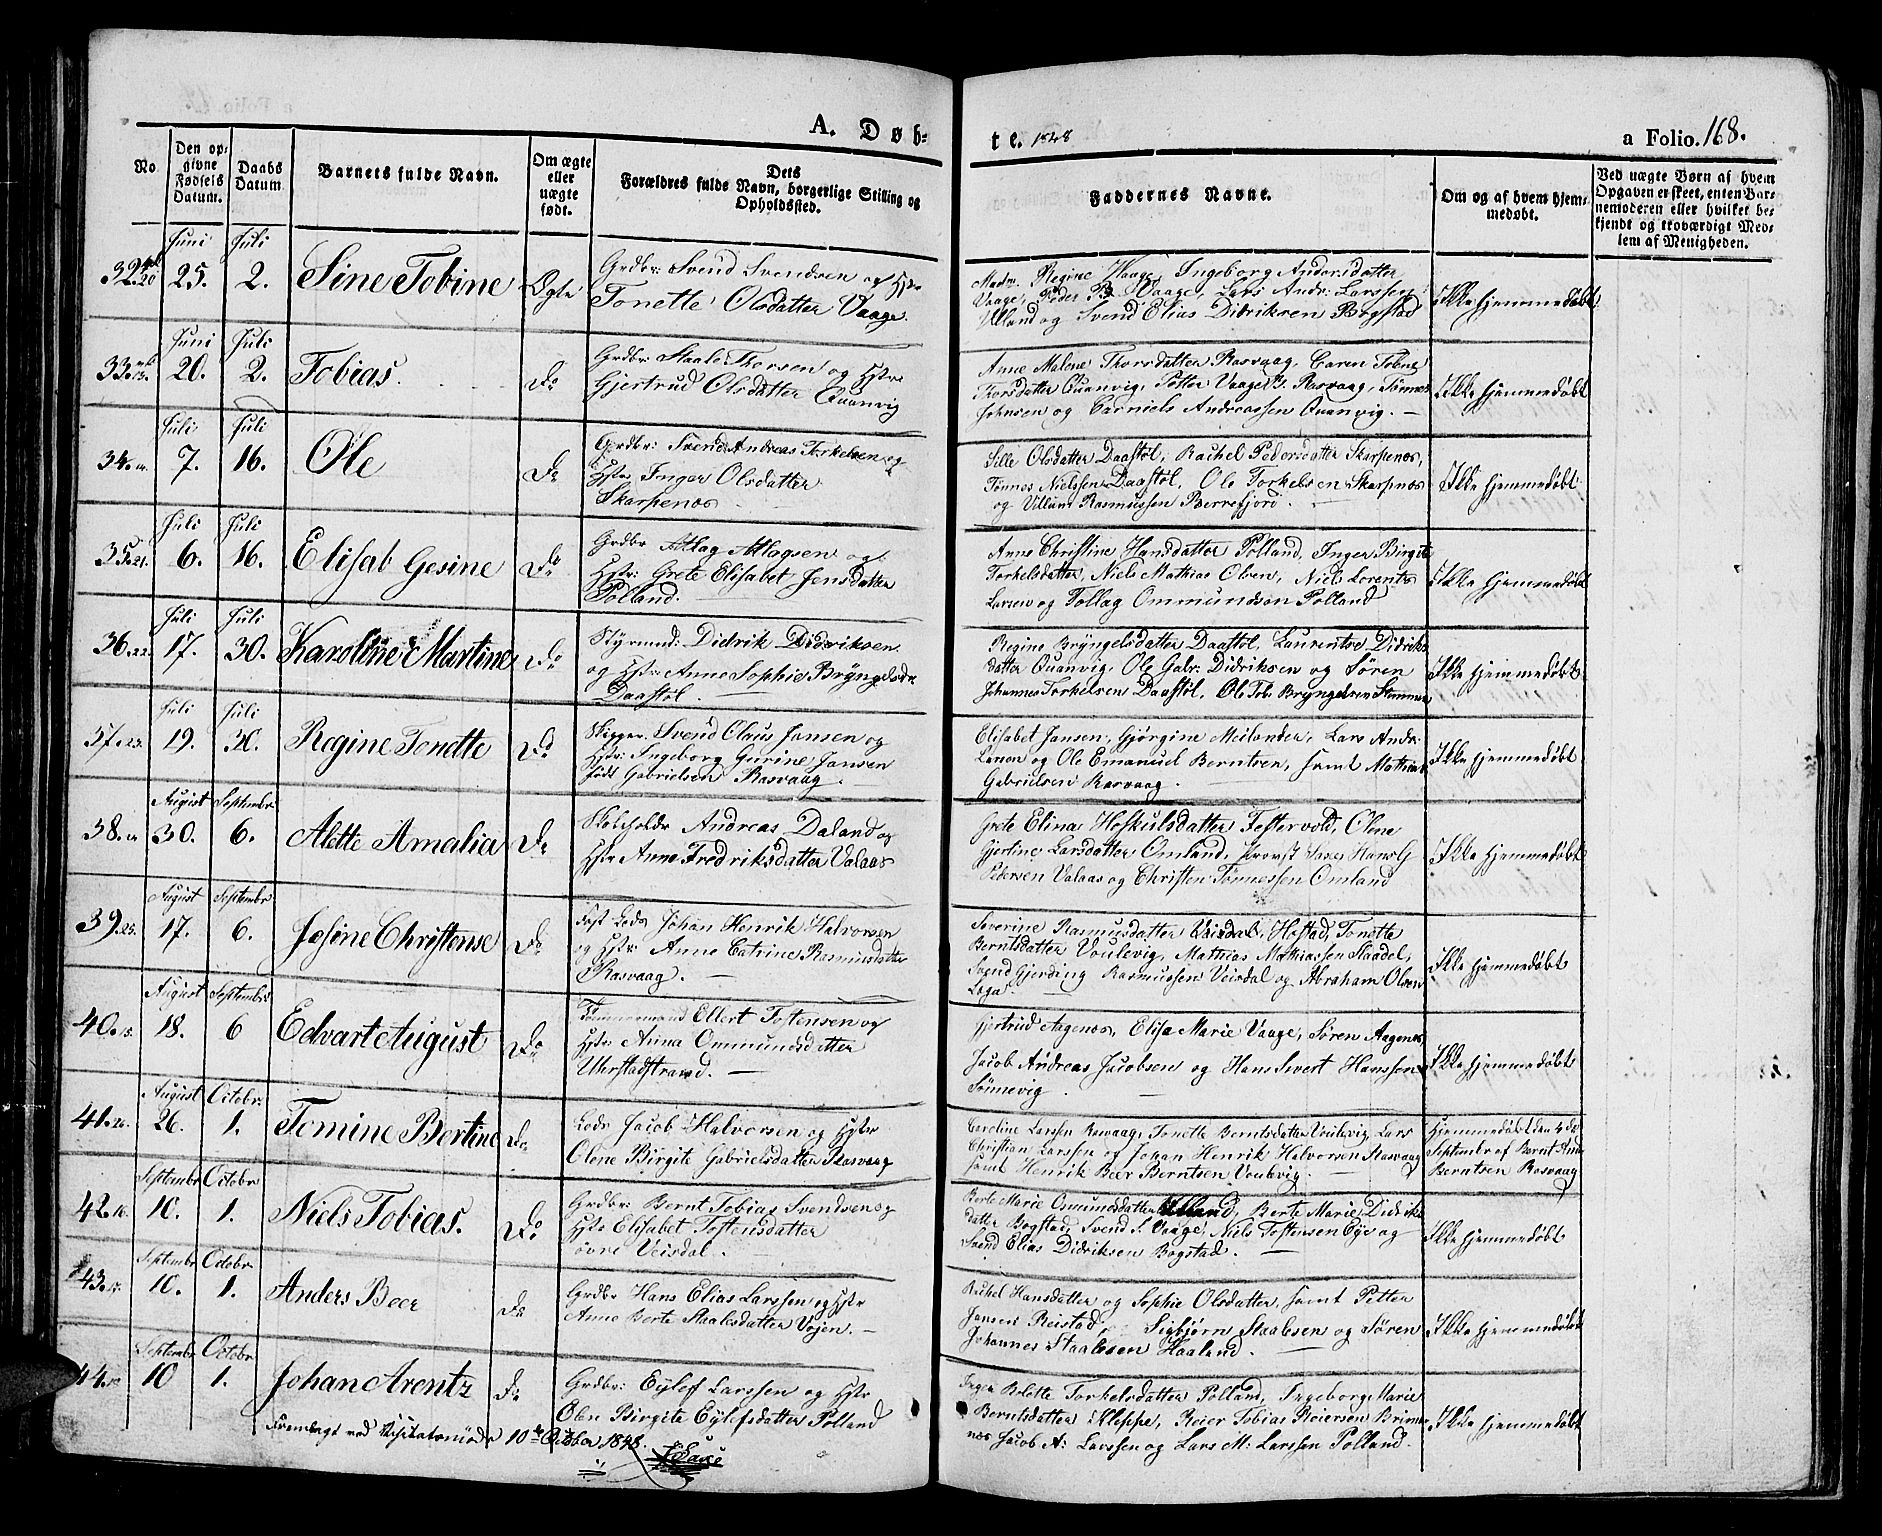 A. Døb-
te. 1848
a Folio. 168.
No
Den opgivne Fødsels Datum.
Daabs Datum
Barnets fulde Navn.
Om ægte eller uægte født.
Dets Forældres fulde Navn, borgerlige Stilling og Opholdssted.
Faddernes Navne.
Om og af hvem hjemmedøbt.
Ved uægte Børn af hvem Opgaven er skeet, enten Barnemoderen eller hvilket bekjendt og troværdigt Medlem af Menigheden.
32. 20
Juni 25.
Juli 2.
Sine Tobine
Ægte
Grdbr: Svend Svendsen og Hstr
Tonette Olsdatter Vaage.
Madm. Regine Vaage, Ingeborg Andersdatter
Vaage, Peder B. Vaage, Lars Andr: Larssen
Ulland og Svend Elias Didriksen Bogstad
Ikke hjemmedøbt
33. 13.
Juni 20.
Juli 2.
Tobias.
Do
Grdbr: Staale Thorsen og Hstr
Gjertrud Olsdatter Quanvig
Anne Malene Thorsdatter Rasvaag, Caren Tobine
Thorsdatter Quanvig, Petter Vaage B. Rasvaag, Tønnes
Johnsen og Carniels Andreassen Quanvig. —
Ikke hjemmedøbt
34. 14.
Juli 7.
Juli 16.
Ole
Do
Grdbr: Svend Andreas Torkelsen og
Hstr Inger Olsdatter
Skarpenos
Sille Olsdatter Daastøl, Rachel Pedersdatter Skarpenos,
Tønnes Nielssen Daastøl, Ole Torkelsen Skarpenos
og Villum Rasmussen Berrefjord.
Ikke hjemmedøbt
35. 21.
Juli 6.
Juli 16.
Elisab Gesine
Do
Grdbr Atlag Atlagsen og
Hstr: Grete Elisabet Jensdatter
Polland.
Anne Christine Hansdatter Polland, Inger Birgite
Torkelsdatter, Niels Mathias Olsen, Niels Lorents
Larsen og Tollag Ommundsen Polland
Ikke hjemmedøbt
36. 22.
Juli 17.
Juli 30.
Karoline Martine
Do
Styrmd: Didrik Didriksen
og Hstr: Anne Sophie Bryngelsdr
Daastøl. —
Regine Bryngelsdatter Daastøl, Laurentse Didriks
datter Quanvig, Ole Gabr: Didriksen og Søren
Johannes Torkelsen Daastøl, Ole Tob: Bryngelsen Stemmen
Ikke hjemmedøbt
37. 23.
Juli 19.
Juli 30.
Regine Tonette
Do
Skipper Svend Olaus Jansen og
Hstr: Ingeborg Gurine Jansen
født Gabrielsen Rasvaag.
Elisabet Jansen, Gjørgine Meilænder, Lars Andr:
og Ole Emanuel Berntsen, samt Mathias
Gabrielsen Rasvaag.
Ikke hjemmedøbt
38.
August 30.
Septembr 6.
Alette Amalia
Do
Skoleholdr Andreas Daland og
Hstr Anne Fredriksdatter Valaas
Grete Elina Hoskulsdatter Festervold, Olene
Gjertine Larsdatter Omland, Provst Saxe, Hans G
Pedersen Valaas og Christen Tønnessen Omland
Ikke hjemmedøbt
39. 25.
August 17.
Septembr 6.
Josine Christense
Do
Fast Lods Johan Henrik Halvorsen
og Hstr: Anne Catrine Rasmusdatter
Rasvaag. —
Severine Rasmusdatter Veisdal, Tonette
Berntsdatter Voulevig, Mathias Mathiassen Staadel,
Svend Gjerding Rasmussen Veisdal og Abraham Olsen
Ikke hjemmedøbt
40. 15.
August 18.
Septembr 6
Edvart August
Do
Tømmermand Ellert Tostensen og
Hstr: Anna Ommundsdatter
Uhrstadstrand. —
Gjertrud Aagenos, Elisa Marie Vaage, Søren Aagenos,
Jacob Andreas Jacobsen og Hans Sivert Hanssen
Sønnevig.
Ikke hjemmedøbt
41. 26.
August 26.
Octobr. 1.
Tomine Bertine
Do
Lods Jacob Halvorsen og Hstr
Olene Birgite Gabrielsdatter Rasvaag
Caroline Larssen Rasvaag, Tonette Berntsdatter Voulevig, Lars
Christian Larssen og Johan Henrik Halvorsen Rasvaag
samt Henrik Beer Berntsen Voulevig.
Hjemmedøbt den 4de
September af Bernt
Berntsen Rasvaag
42. 16.
Septembr 10.
Octobr 1.
Niels Tobias.
Do
Grdbr: Bernt Tobias Svendsen og
Hstr Elisabet Tostensdatter
øvre Veisdal. —
Berte Marie Ommundsdatter Ulland, Berte Marie Didriks
datter Bogstad, Svend S. Vaage, Niels Tostensen Eye og
Svend Elias Didriksen Bogstad. —
Ikke hjemmedøbt
43. 17.
Septembr 10.
Octobr 1.
Anders Beer
Do
Grdbr Hans Elias Larssen og Hstr
Anne Berte Staalesdatter Vojen. —
Rachel Hansdatter og Sophie Olsdatter, samt Petter
Jansen Reistad, Sigbjørn Staalesen og Søren
Johannes Staalesen Haaland.
Ikke hjemmedøbt
44. 18
Septembr 10
Octobr 1.
Johan Arentz
Do
Grdbr: Eylef Larssen og Hstr
Olene Birgite Eylefsdatter Polland
Inger Bolette Torkelsdatter Polland, Ingeborg Marie
Berntsdatter Kleppe, Reier Tobias Reiersen Brimse
nes Jacob A: Larssen og Lars M: Larssen Polland.
Ikke hjemmedøbt
Fremlagt ved Visitatsmøde 10de October 1848.
Saxe